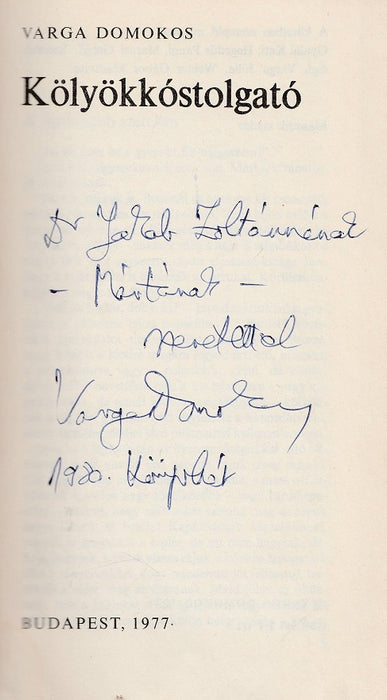 VARGA DOMOKOS
Kölyökkóstolgató
Dr Jakab Zoltánnénak
- Mártának -
szeretettel
Varga Domokos
1980. Könyvhét
BUDAPEST, 1977.